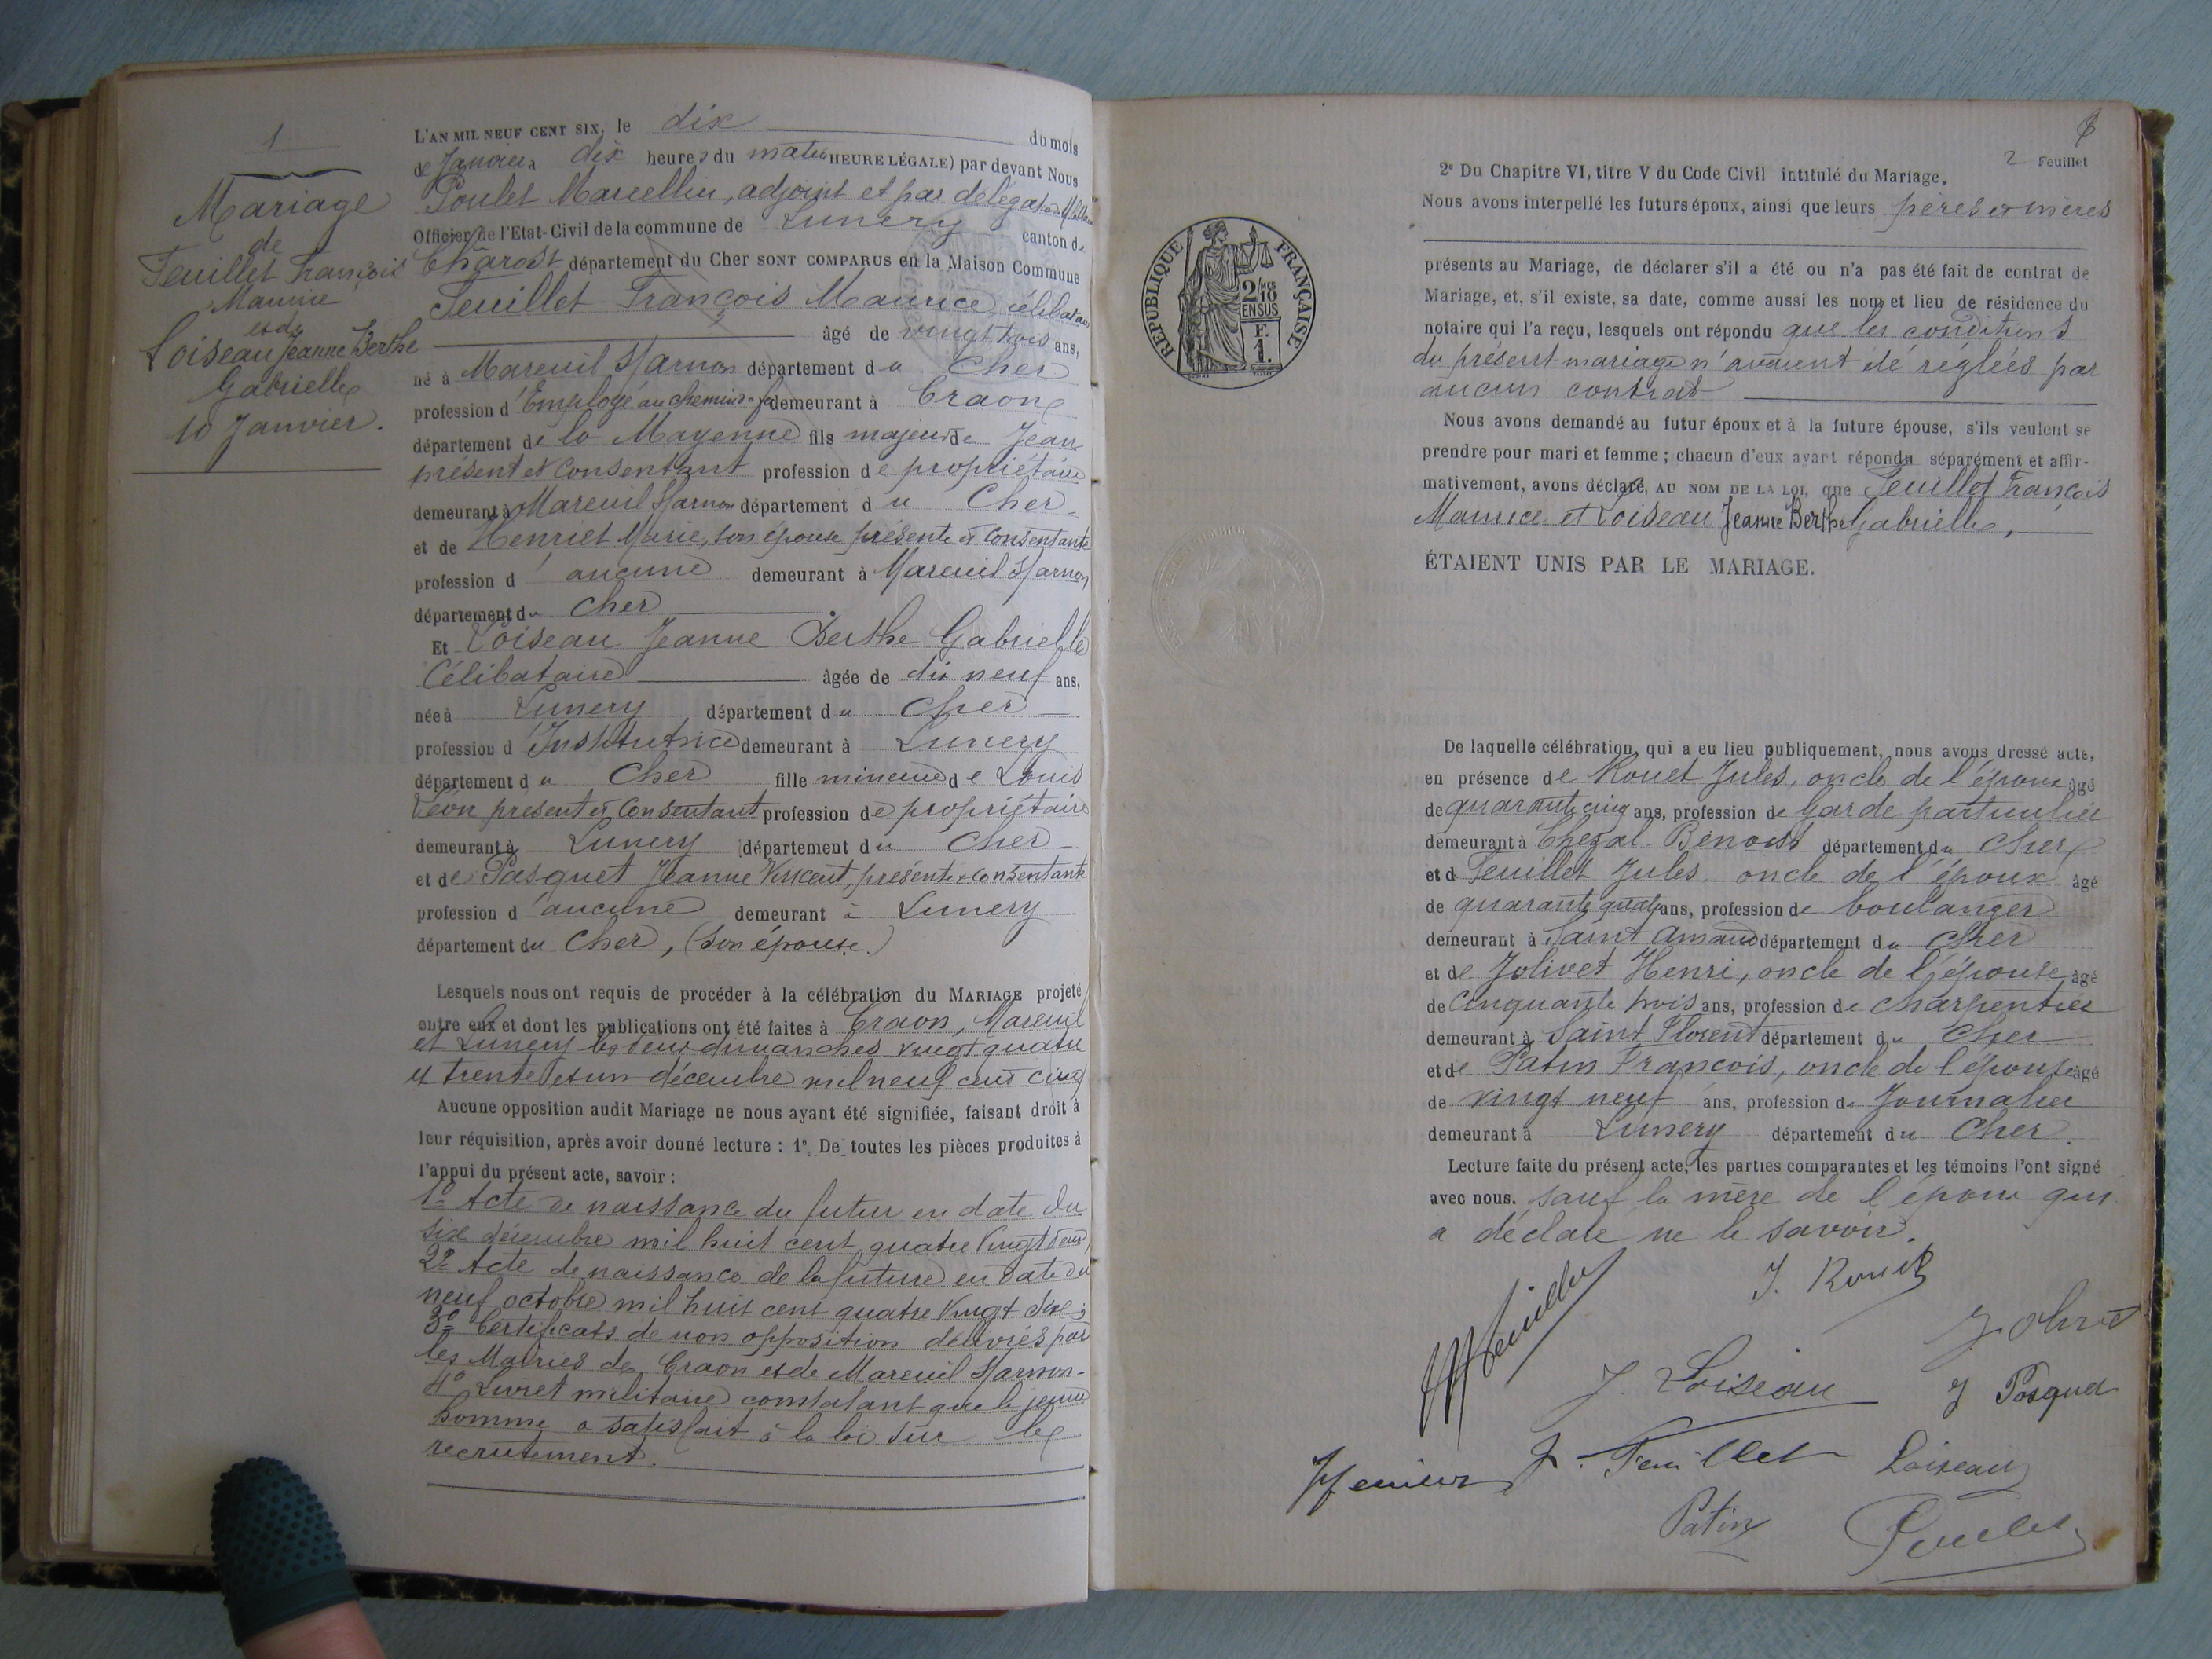 1
Mariage
de
Feuillet François
Maurice
et de
Loiseau Jeanne Berthe
Gabrielle
10 Janvier.
L'AN MIL NEUF CENT SIX, le dix du mois
de Janvier à dix heures du matin HEURE LÉGALE) par devant Nous
Poulet Marcellin, adjoint et par délégation
Officier de l'Etat-Civil de la commune de Lunery canton de
Chârost département du Cher SONT COMPARUS en la Maison Commune
Feuillet François Maurice, célibataire
âgé de vingt trois ans,
né à Mareuil S/Arnon département du Cher
profession d'Employé au chemin de fer demeurant à Craon
département de la Mayenne fils majeur de Jean
présent et consentant profession de propriétaire
demeurant à Mareuil S/Arnon département du Cher
et de Henriet Marie, son épouse présente et consentante
profession d'aucune demeurant à Mareuil S/Arnon
département du Cher
Et Loiseau Jeanne Berthe Gabrielle
Célibataire âgée de dix neuf ans,
née à Lunery département du Cher
profession d'Institutrice demeurant à Lunery
département du Cher fille mineure de Louis
Léon présent et consentant profession de propriétaire
demeurant à Lunery département du Cher
et de Pasquet Jeanne Vincent, présente & consentante
profession d'aucune demeurant à Lunery
département du Cher, (son épouse.)
Lesquels nous ont requis de procéder à la célébration du MARIAGE projeté
entre eux et dont les publications ont été faites à Craon, Mareuil
et Lunery les deux dimanches vingt quatre
et trente et un décembre mil neuf cent cinq
Aucune opposition audit Mariage ne nous ayant été signifiée, faisant droit à
leur réquisition, après avoir donné lecture : 1° De toutes les pièces produites à
l'appui du présent acte, savoir :
1° Acte de naissance du futur en date du
six décembre mil huit cent quatre vingt deux
2° Acte de naissance de la future en date du
neuf octobre mil huit cent quatre vingt six;
3° Certificats de non opposition délivrés par
les Mairies de Craon et de Mareuil S/Arnon-
4° Livret militaire constatant que le jeune
homme a satisfait à la loi sur le
recrutement.
2 Feuillet
2° Du Chapitre VI, titre V du Code Civil intitulé du Mariage.
Nous avons interpellé les futurs époux, ainsi que leurs pères et mères
présents au Mariage, de déclarer s'il a été ou n'a pas été fait de contrat de
Mariage, et, s'il existe, sa date, comme aussi les nom et lieu de résidence du
notaire qui l'a reçu, lesquels ont répondu que les conditions
du présent mariage n'avaient été réglées par
aucun contrat
Nous avons demandé au futur époux et à la future épouse, s'ils veulent se
prendre pour mari et femme ; chacun d'eux ayant répondu séparément et affir-
mativement, avons déclaré, AU NOM DE LA LOI, que Feuillet François
Maurice et Loiseau Jeanne Berthe Gabrielle,
ÉTAIENT UNIS PAR LE MARIAGE.
De laquelle célébration, qui a eu lieu publiquement, nous avons dressé acte,
en présence de Rouet Jules, oncle de l'époux âgé
de quarante cinq ans, profession de Garde particulier
demeurant à Chezal-Benoist département du Cher
et de Feuillet Jules oncle de l'époux âgé
de quarante quatre ans, profession de boulanger
demeurant à Saint Amand département du Cher
et de Jolivet Henri, oncle de l'épouse âgé
de Cinquante trois ans, profession de charpentier
demeurant à Saint Florent département du Cher
et de Patin François, oncle de l'épouse âgé
de vingt neuf ans, profession de Journalier
demeurant à Lunery département du Cher.
Lecture faite du présent acte, les parties comparantes et les témoins l'ont signé
avec nous. sauf la mère de l'époux qui
a déclaré ne le savoir.
J. Rouet
J. Loiseau
J Pasquet
J. Feuillet
Loiseau
Patin
Poulet
RÉPUBLIQUE FRANÇAISE
2/10
EN SUS
F.
1.